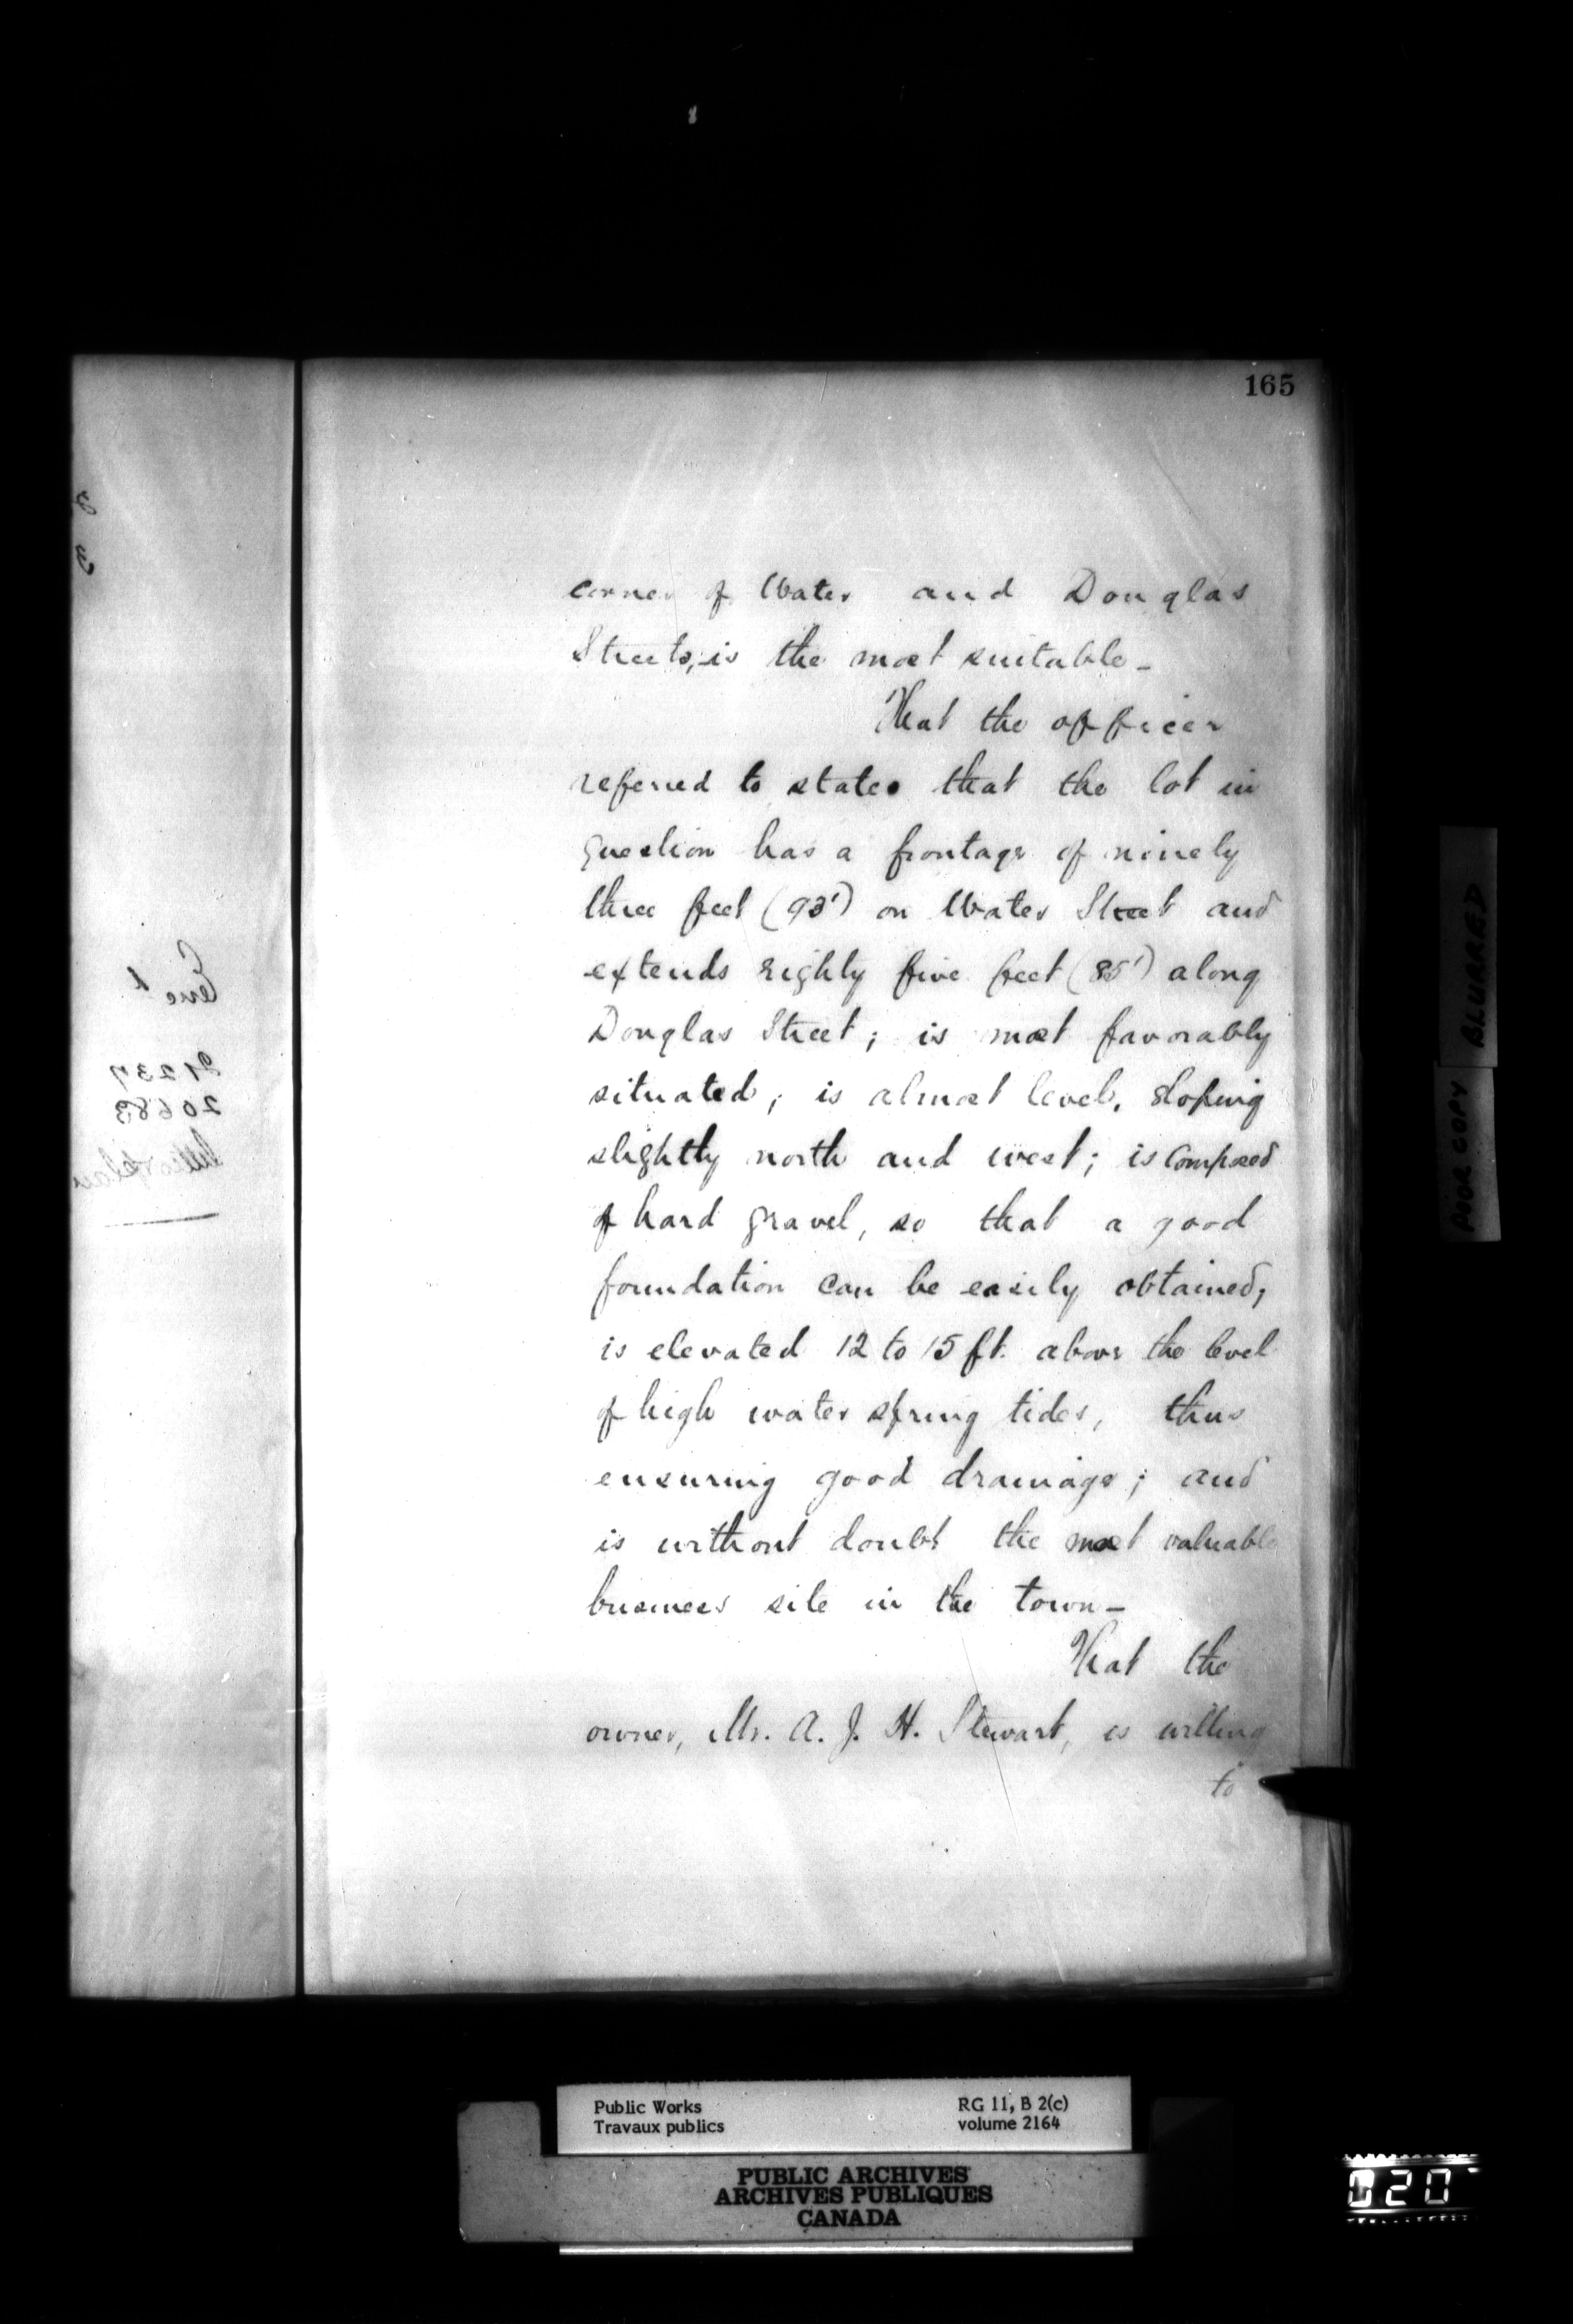 165
corner of Water and Douglas
Streets, is the most suitable_
That the officer
referred to states that the lot in
question has a frontage of ninety
three feet (93') on Water Street and
extends eighty five feet (85') along
Douglas Street; is most favorably
situated; is almost level, sloping
slightly north and west; is composed
of hard gravel, so that a good
foundation can be easily obtained;
is elevated 12 to 15 ft. above the level
of high water spring tides, thus
ensuring good drainage; and
is without doubt the most valuable
business site in the town_
That the
owner, Mr. A. J. H. Stewart, is willing
to
21237
20683
POOR COPY
BLURRED
Public Works
Travaux publics
RG 11, B 2(c)
volume 2164
PUBLIC ARCHIVES
ARCHIVES PUBLIQUES
CANADA
020